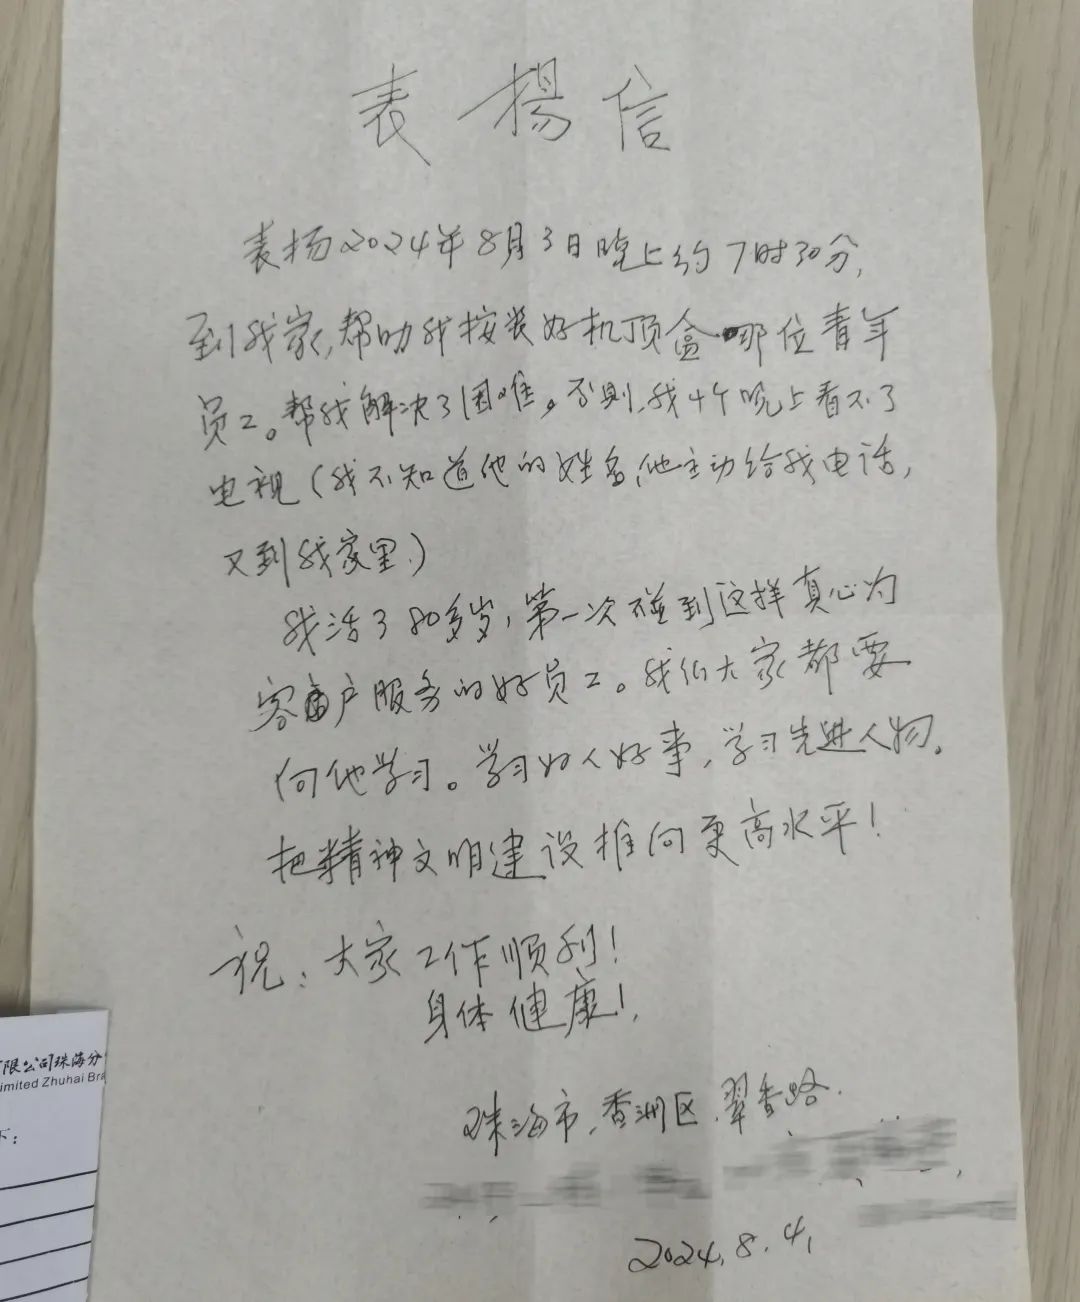 表揚信
表扬2024年8月3日晚上约7时30分,
到我家,帮助我按装好机顶盒哪位青年
员工。帮我解决了困难。否则,我4个晚上看不了
电视(我不知道他的姓名,他主动给我电话,
又到我家里.)
我活了80多岁,第一次碰到这样真心为
客户服务的好员工。我们大家都要
向他学习。学习好人好事,学习先进人物。
把精神文明建设推向更高水平!
祝:大家工作顺利!
身体健康!
珠海市,香洲区.翠香路.
2024.8.4,
限公司珠海分
imited Zhuhai Bra
下: